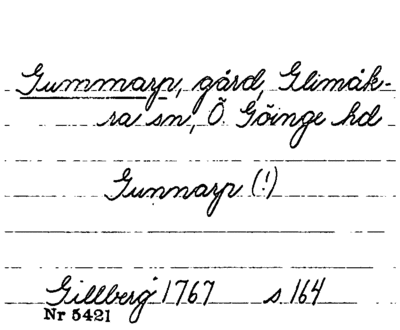 Gummarp, gård, Glimåk-
ra sn, Ö Göinge hd
Gunnarp (!)
Gillberg 1767 s 164
Nr 5421